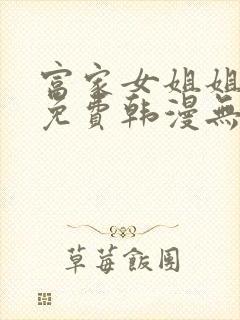 富家女姐姐
免費韩漫無
草莓飯團